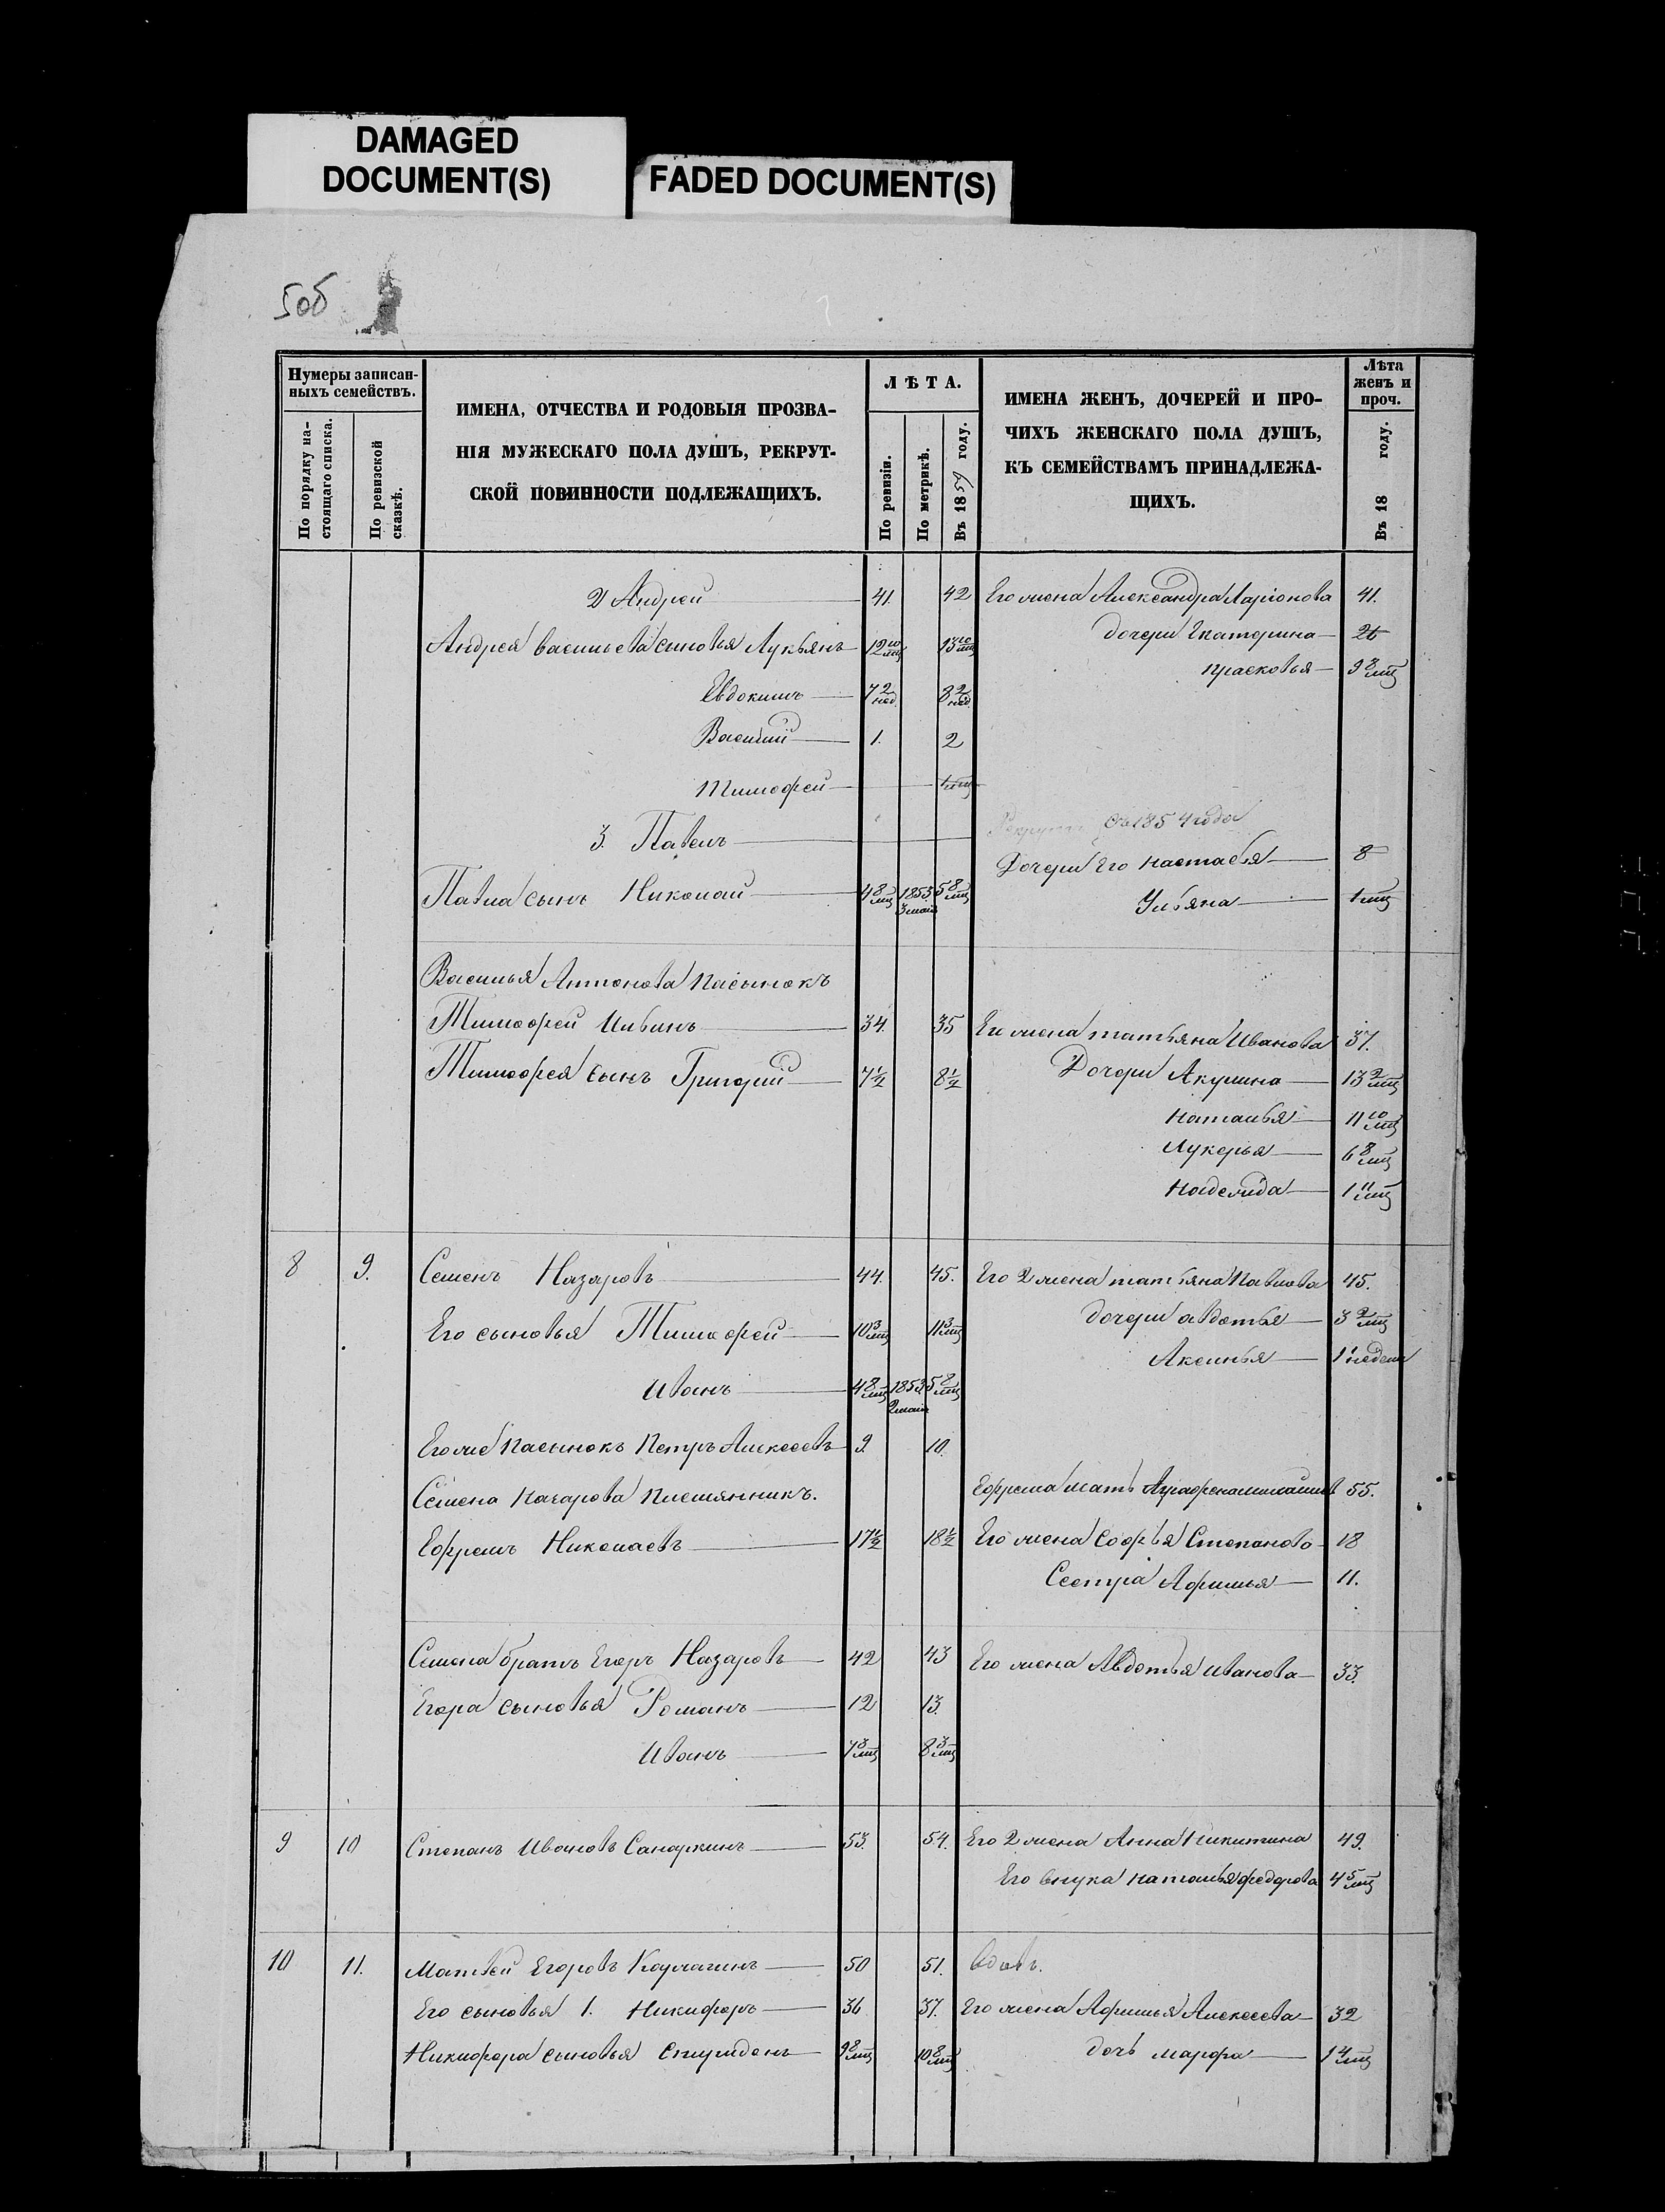 DAMAGED
DOCUMENT(S)
FADED DOCUMENT(S)
5об
Нумеры записан-
ныхъ семействъ.
По порядку на-
стоящаго списка.
По ревизской
сказкѣ.
ИМЕНА, ОТЧЕСТВА И РОДОВЫЯ ПРОЗВА-
НІЯ МУЖЕСКАГО ПОЛА ДУШЪ, РЕКРУТ-
СКОЙ ПОВИННОСТИ ПОДЛЕЖАЩИХЪ.
ЛѢТА.
По ревизіи.
По метрикѣ.
Въ 1859 году.
ИМЕНА ЖЕНЪ, ДОЧЕРЕЙ И ПРО-
ЧИХЪ ЖЕНСКАГО ПОЛА ДУШЪ,
КЪ СЕМЕЙСТВАМЪ ПРИНАДЛЕЖА-
ЩИХЪ.
Лѣта
женъ и
проч.
Въ 18 году.
2 Андрей 41. 42 Его жена Александра Ларіонова 41.
Андрея васильева сыновья Лукьянъ 12 10 мц 13 10 мц дочери Екатерина
прасковья 9 8 мц
Евдокимъ 7 2 нед. 8 2 нед.
Василий 1. 2
Тимофей 1 мц
3. Павелъ Рекрутъ съ 1854 года
Дочери Его настасья 8
Павла сынъ Николай 4 8 мц 1853 3 маія 5 8 мц Ульяна 1 мц
Василья Антонова пасынокъ
Тимофей 34. 35 Ег жена татьяна Иванова 37.
Тимофея сынъ Григорий 7½ 8½ Дочери Акулина 13 2 мц
Наталья 11 10 мц
Лукерья 6 8 мц
Надежда 1 11 мц
8 9. Семенъ Назаровъ 44. 45. Его 2 жена татьяна Павлова 45.
Его сыновья Тимофей 10 3 мц 11 3 мц дочери авдотья 3 2 мц
Аксинья 1 1 недели
Иванъ 4 8 мц 1853 2 маія 5 8 мц
Его же пасынокъ Петръ Алексеевъ 9. 10.
Семена Назарова племянникъ. Ефрема мать Аграфена 55.
Ефремъ Николаевъ 17½ 18½ Его жена Софья Степанова 18
Сестра Афимья 11.
Семена братъ Егоръ Назаровъ 42 43 Его жена Авдотья иванова 33.
Егора сыновья Романъ 12 13.
Иванъ 7 3 мц 8 3 мц
9 10 Степанъ Ивановъ Санаркинъ 53. 54. Его 2 жена Анна Никитина 49.
Его внука наталья федорова 4 5 мц
10 11. Матвей Егоровъ 50 51. вдовъ.
Его сыновья 1. Никифоръ 36 37. Его жена Афимья Алексеева 32
Никифора сыновья Спиридонъ 9 8 мц 10 8 мц дочь марфа 1 4 мц